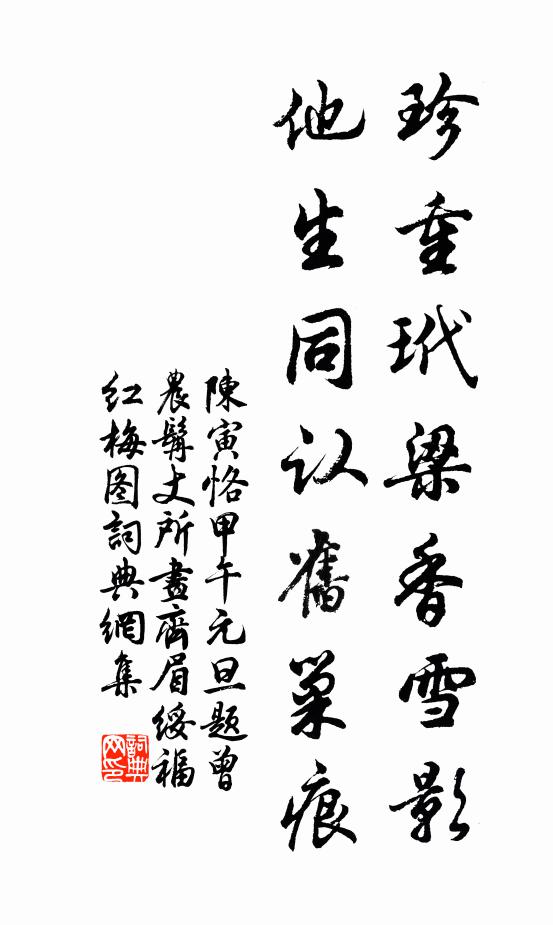 珍重玳梁香雪影
他生同认舊巢痕
陳寅恪甲午元旦题曾
農髯丈所畫齊眉綏福
红梅图詞典網集
詞典网印